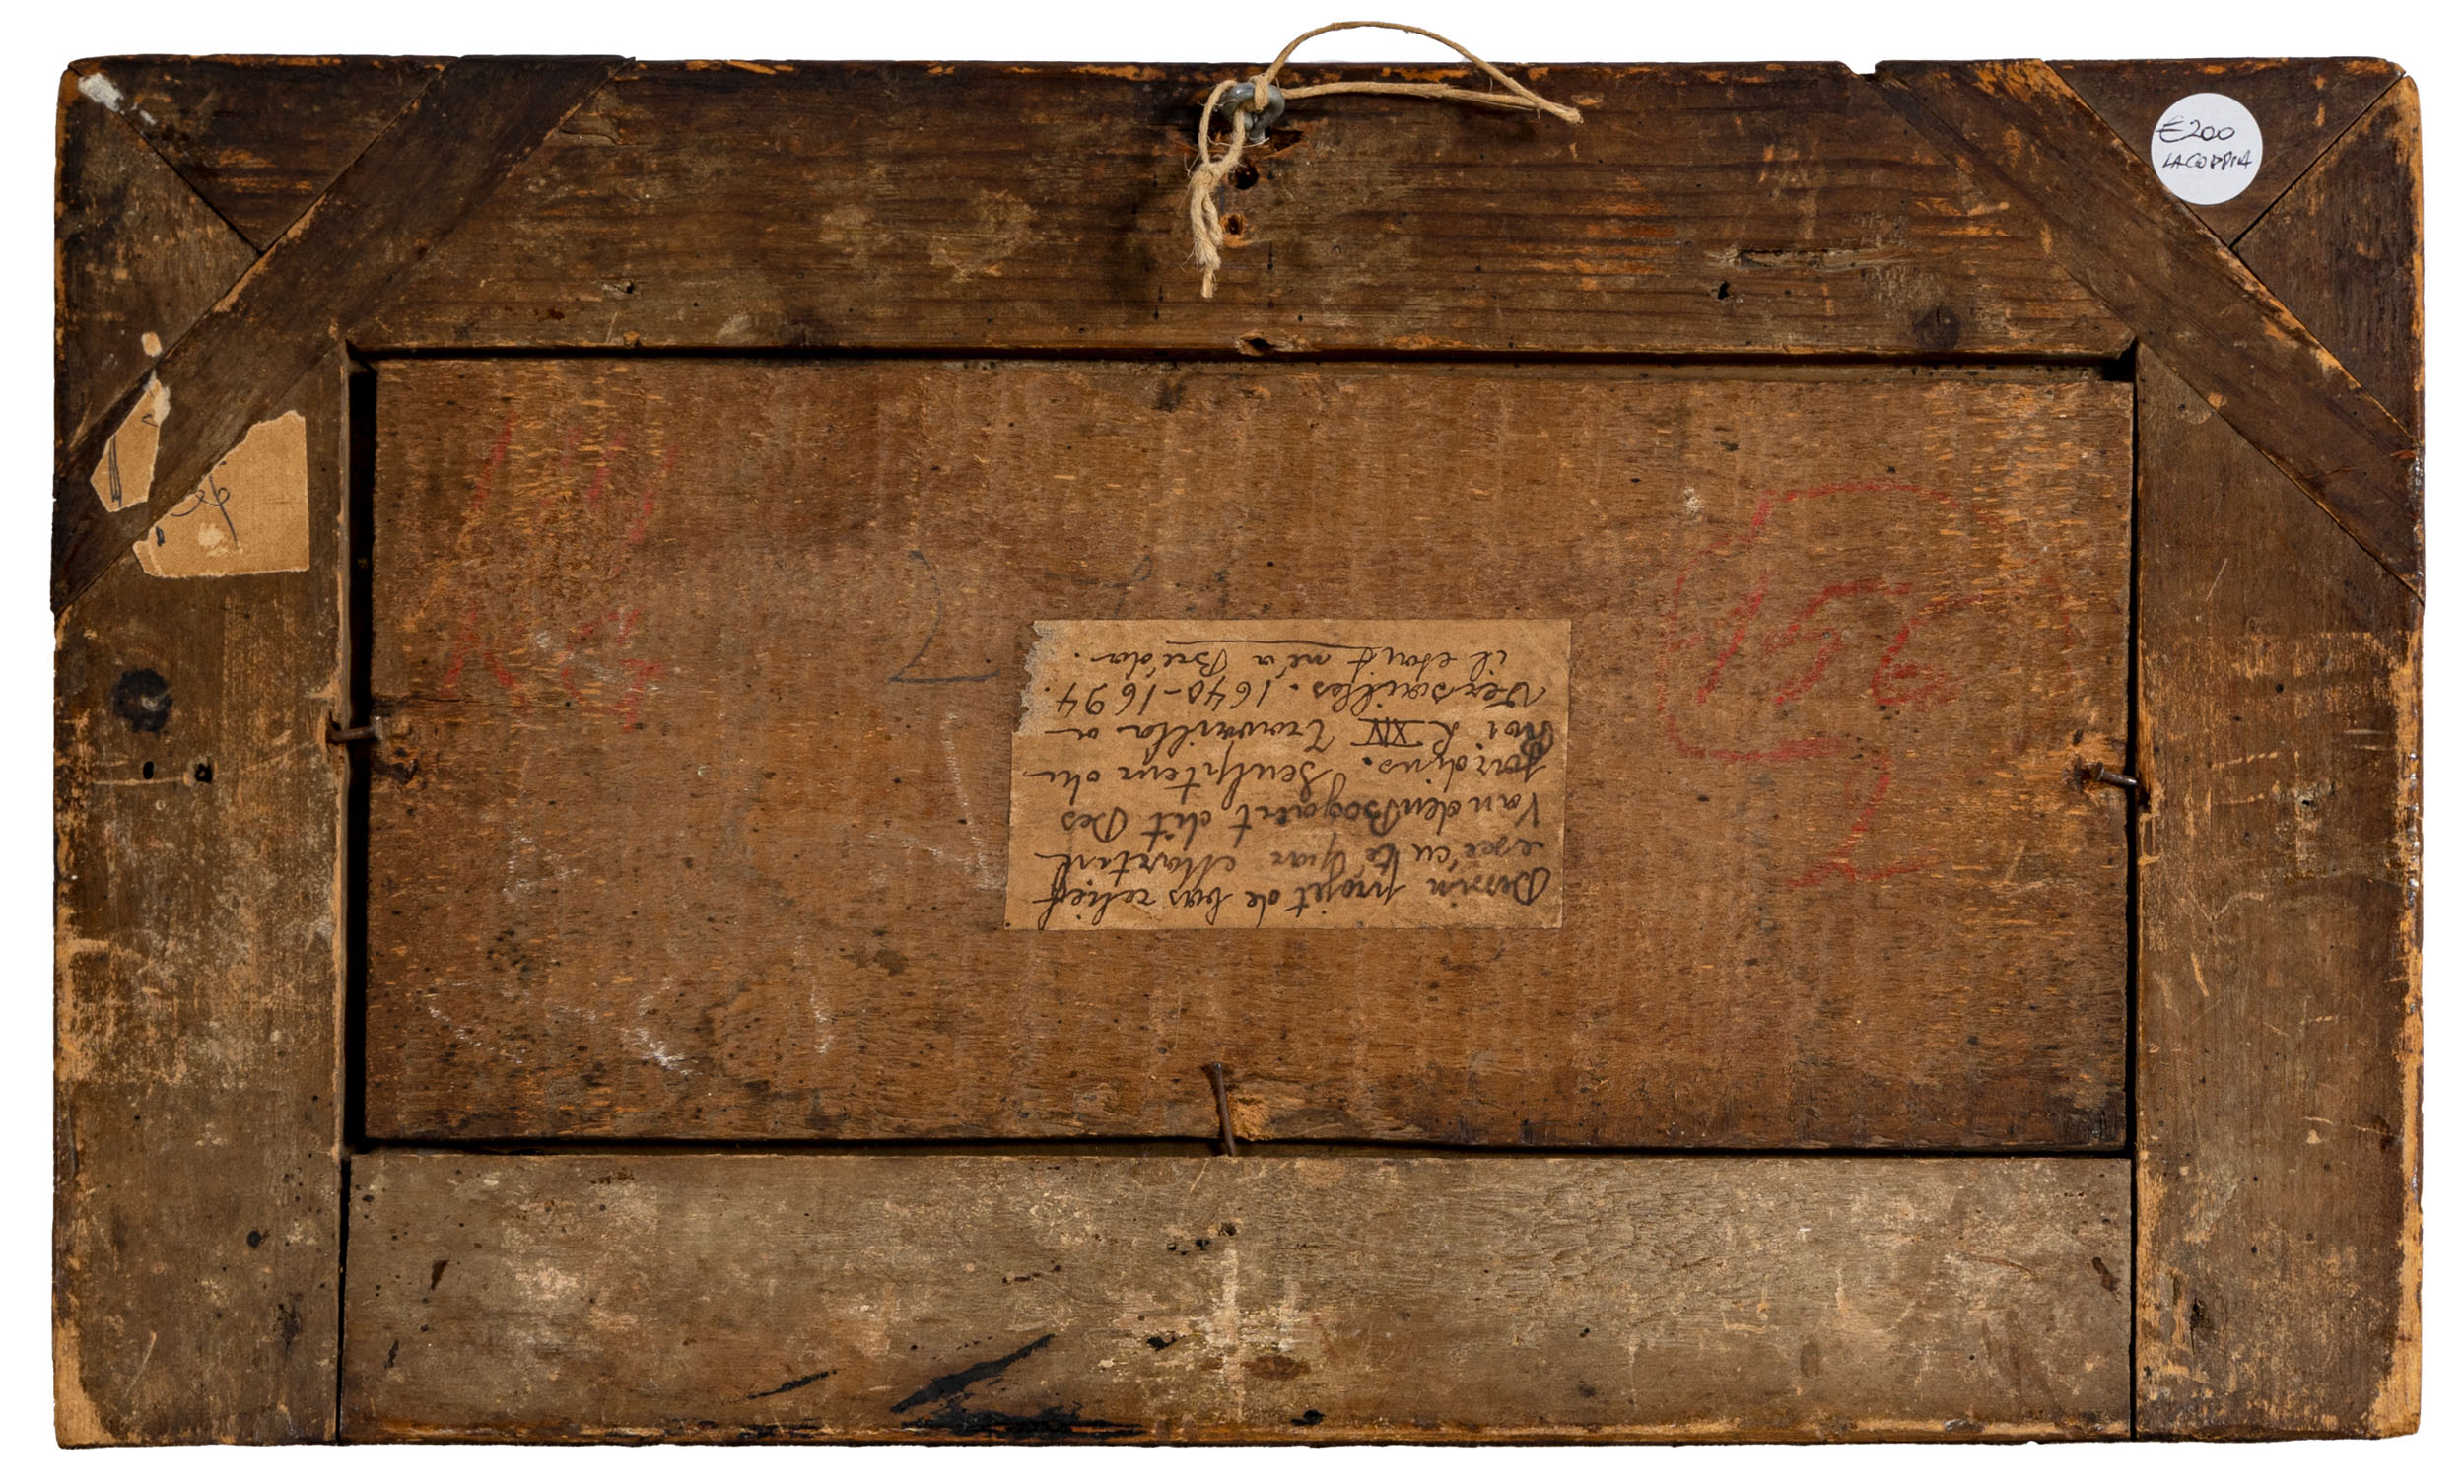 €200
LA COPPIA
Dessin projet de bas relief
exécuté par Martin
Vanden Bogaert dit Des
jardins. Sculpteur du
Roi L XIV Travailla a
Versailles. 1640-1694.
il etait né a Bréda.
2